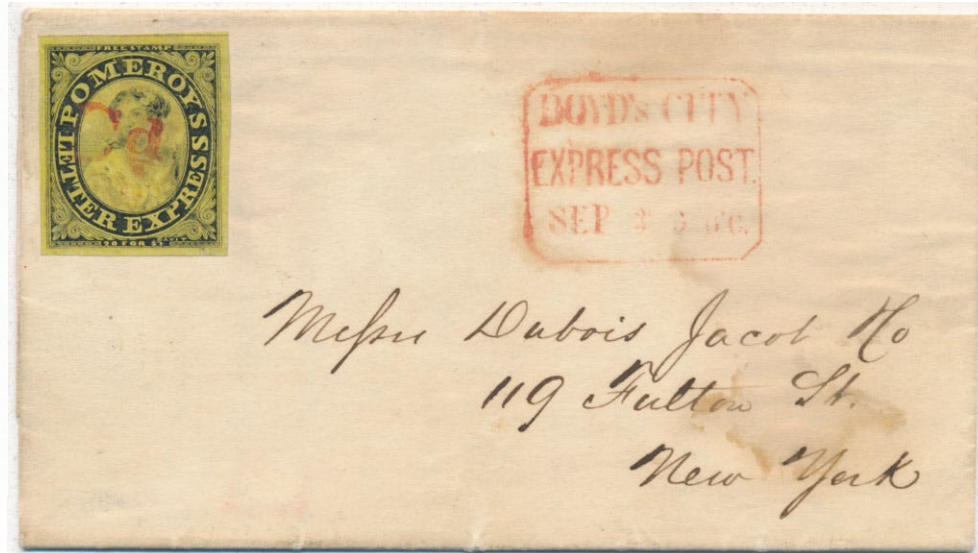 FREE STAMP
POMEROY'S
LETTER EXPRESS
20 FOR $1
Cd
BOYD'S CITY
EXPRESS POST.
SEP 3
Messrs Dubois Jacot &Co
119 Fulton St.
New York